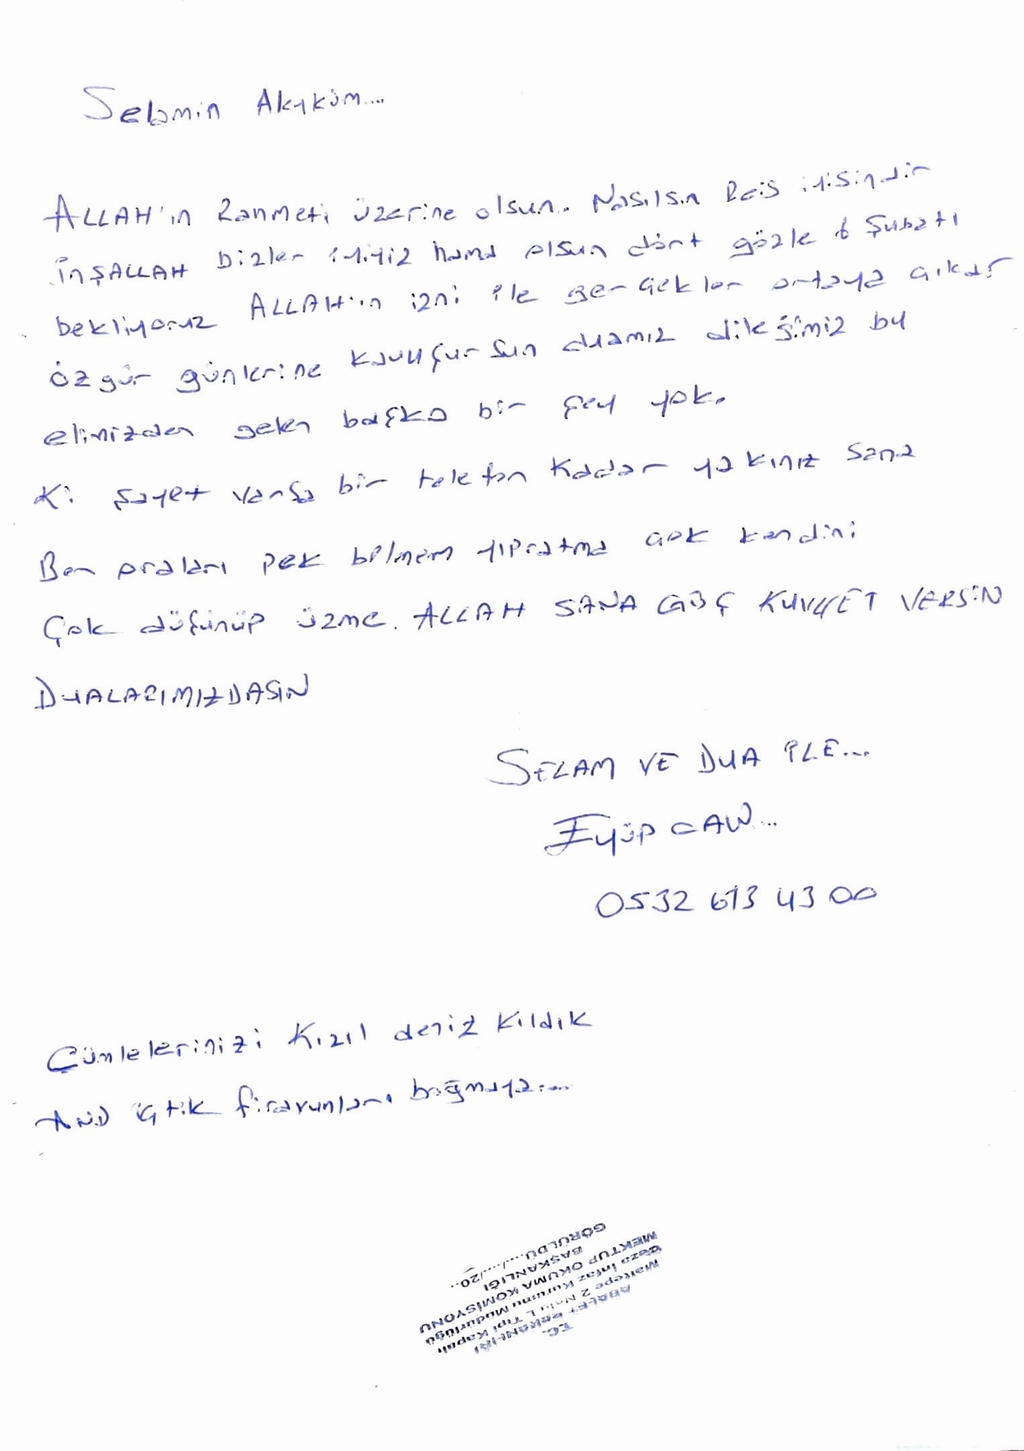 Selamin Aleyküm...
ALLAH'ın Rahmeti üzerine olsun. Nasılsın Reis iyisindir
İnŞALLAH bizler iyiyiz hamd olsun dört gözle 6 Şubatı
bekliyoruz ALLAH'ın izni ile gerçekler ortaya çıkar
özgür günlerine kavuşursun duamız dileğimiz bu
elimizden gelen başka bir şey yok.
Ki şayet varsa bir telefon kadar yakınız sana
Ben oraları pek bilmem yıpratma çok kendini
Çok düşünüp üzme. ALLAH SANA GÜÇ KUVVET VERSİN
DUALARIMIZDASIN
SELAM VE DUA İLE...
Eyüp CAN...
0532 613 43 00
Cümlelerinizi Kızıl deniz kıldık
AND içtik firavunları boğmaya....
T.C.
ADALET BAKANLIĞI
Maltepe 2 Nolu L Tipi Kapalı
Ceza İnfaz Kurumu Müdürlüğü
MEKTUP OKUMA KOMİSYONU
BAŞKANLIĞI
GÖRÜLDÜ..../..../20..